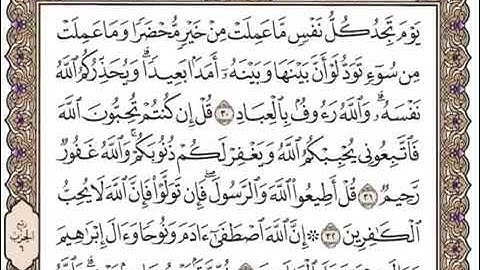 يَوْمَ تَجِدُ كُلُّ نَفْسٍ مَّا عَمِلَتْ مِنْ خَيْرٍ مُّحْضَرًا وَمَا عَمِلَتْ
مِن سُوٓءٍ تَوَدُّ لَوْ أَنَّ بَيْنَهَا وَبَيْنَهُۥٓ أَمَدًۢا بَعِيدًا ۗ وَيُحَذِّرُكُمُ ٱللَّهُ
نَفْسَهُۥ ۗ وَٱللَّهُ رَءُوفٌۢ بِٱلْعِبَادِ ٣٠ قُلْ إِن كُنتُمْ تُحِبُّونَ ٱللَّهَ
فَٱتَّبِعُونِى يُحْبِبْكُمُ ٱللَّهُ وَيَغْفِرْ لَكُمْ ذُنُوبَكُمْ ۗ وَٱللَّهُ غَفُورٌ
رَّحِيمٌ ٣١ قُلْ أَطِيعُوا۟ ٱللَّهَ وَٱلرَّسُولَ ۖ فَإِن تَوَلَّوْا۟ فَإِنَّ ٱللَّهَ لَا يُحِبُّ
ٱلْكَـٰفِرِينَ ٣٢ ۞ إِنَّ ٱللَّهَ ٱصْطَفَىٰٓ ءَادَمَ وَنُوحًا وَءَالَ إِبْرَٰهِيمَ